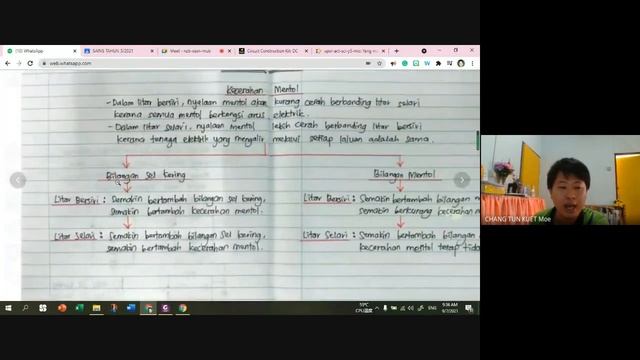 (10) WhatsApp
SAINS TAHUN 5/2021
Meet - ncb-xsen-mub
Circuit Construction Kit: DC
web.whatsapp.com
Kecerahan Mentol
- Dalam litar bersiri, nyalaan mentol akan kurang cerah berbanding litar selari
kerana semua mentol berkongsi arus elektrik.
- Dalam litar selari, nyalaan mentol lebih cerah berbanding litar bersiri
kerana tenaga elektrik yang mengalir melalui setiap laluan adalah sama.
Bilangan Sel kering
Bilangan Mentol
Litar Bersiri : Semakin bertambah bilangan sel kering,
semakin bertambah kecerahan mentol.
Litar Bersiri : Semakin bertambah bilangan
semakin berkurang kecerahan
Litar Selari : Semakin bertambah bilangan sel kering,
semakin bertambah kecerahan mentol.
Litar Selari : Semakin bertambah bilangan
kecerahan mentol tetap
CHANG TUN KUET Moe
59°C
CPU温度
ENG
9:36 AM
9/7/2021